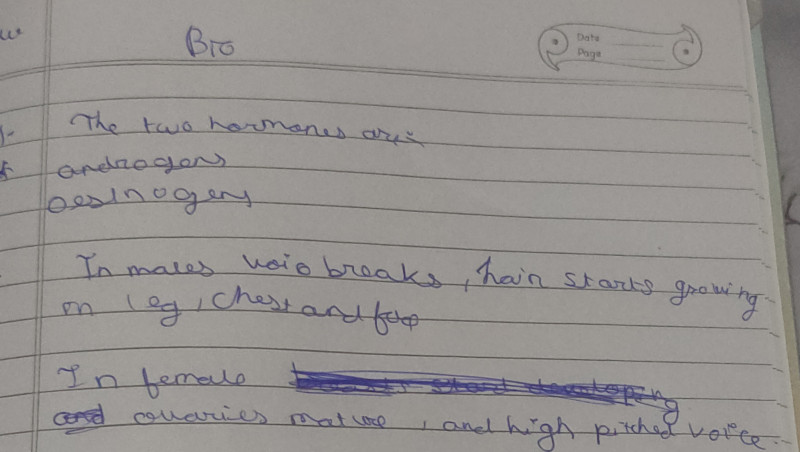 Bio
Date
Page
The two hormones are:-
androgens
oestrogens
In males voic breaks, hair starts growing
on leg, chest and face
In female
ovaries mature, and high pitched voice.